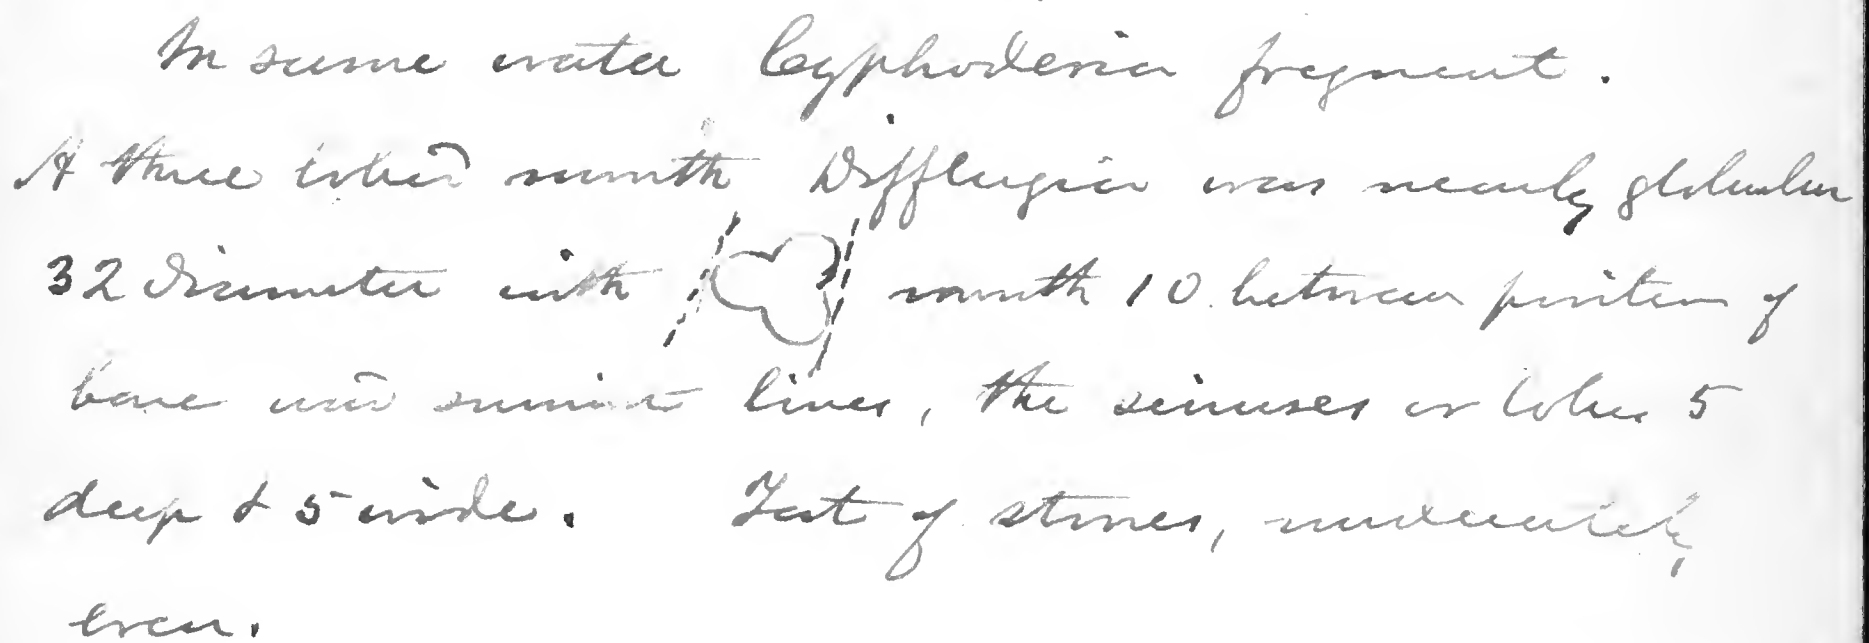 In same water Cyphoderia fregment.
A three lobed mouth Difflugia was nearly globular
32 diameter with mouth 10 between position of
base and summit lines, the sinuses or lobes 5
deep & 5 wide. Test of stones, moderately,
even.